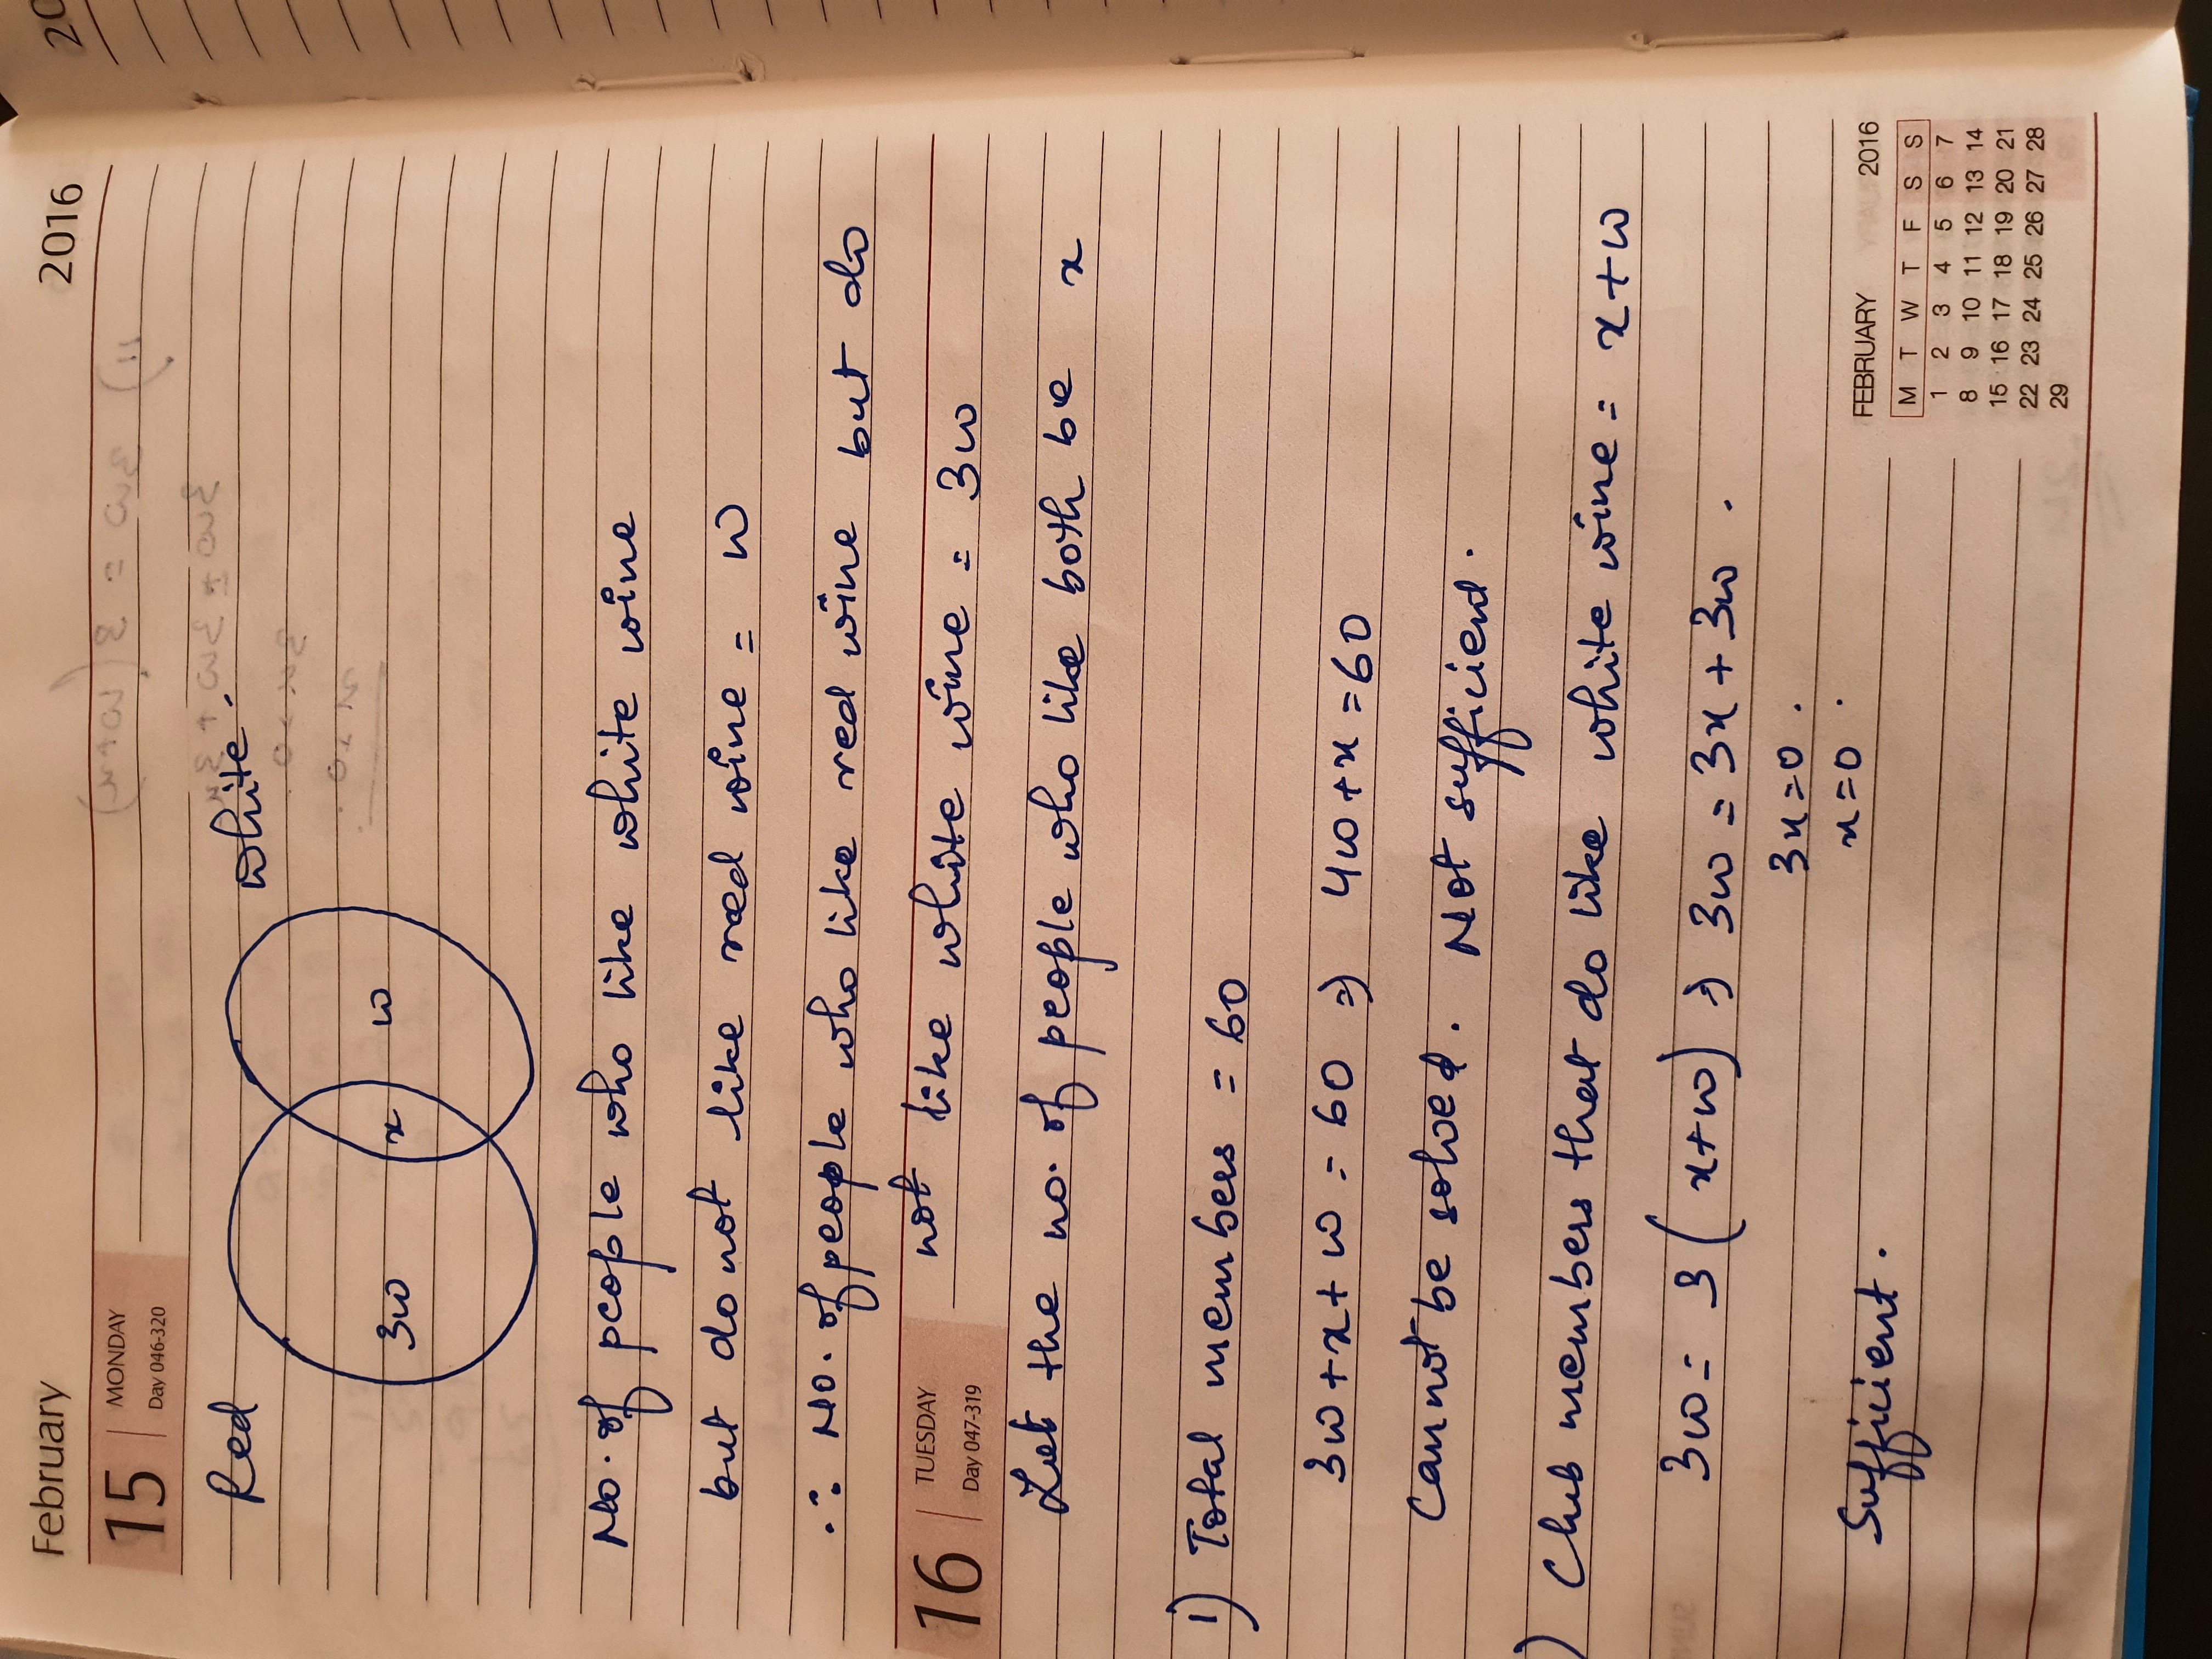 February 2016
20
15 MONDAY
Day 046-320
Red white.
3w x w
No. of people who like white wine
but do not like red wine = w
∴ No. of people who like red wine but do
16 TUESDAY
Day 047-319
not like white wine = 3w
Let the no. of people who like both be x
1) Total members = 60
3w + x + w = 60 ⇒ 4w + x = 60
Cannot be solved. Not sufficient.
) Club members that do like white wine = x + w
3w = 3 (x + w) ⇒ 3w = 3x + 3w.
3x = 0.
x = 0.
Sufficient.
FEBRUARY 2016
M T W T F S S
1 2 3 4 5 6 7
8 9 10 11 12 13 14
15 16 17 18 19 20 21
22 23 24 25 26 27 28
29